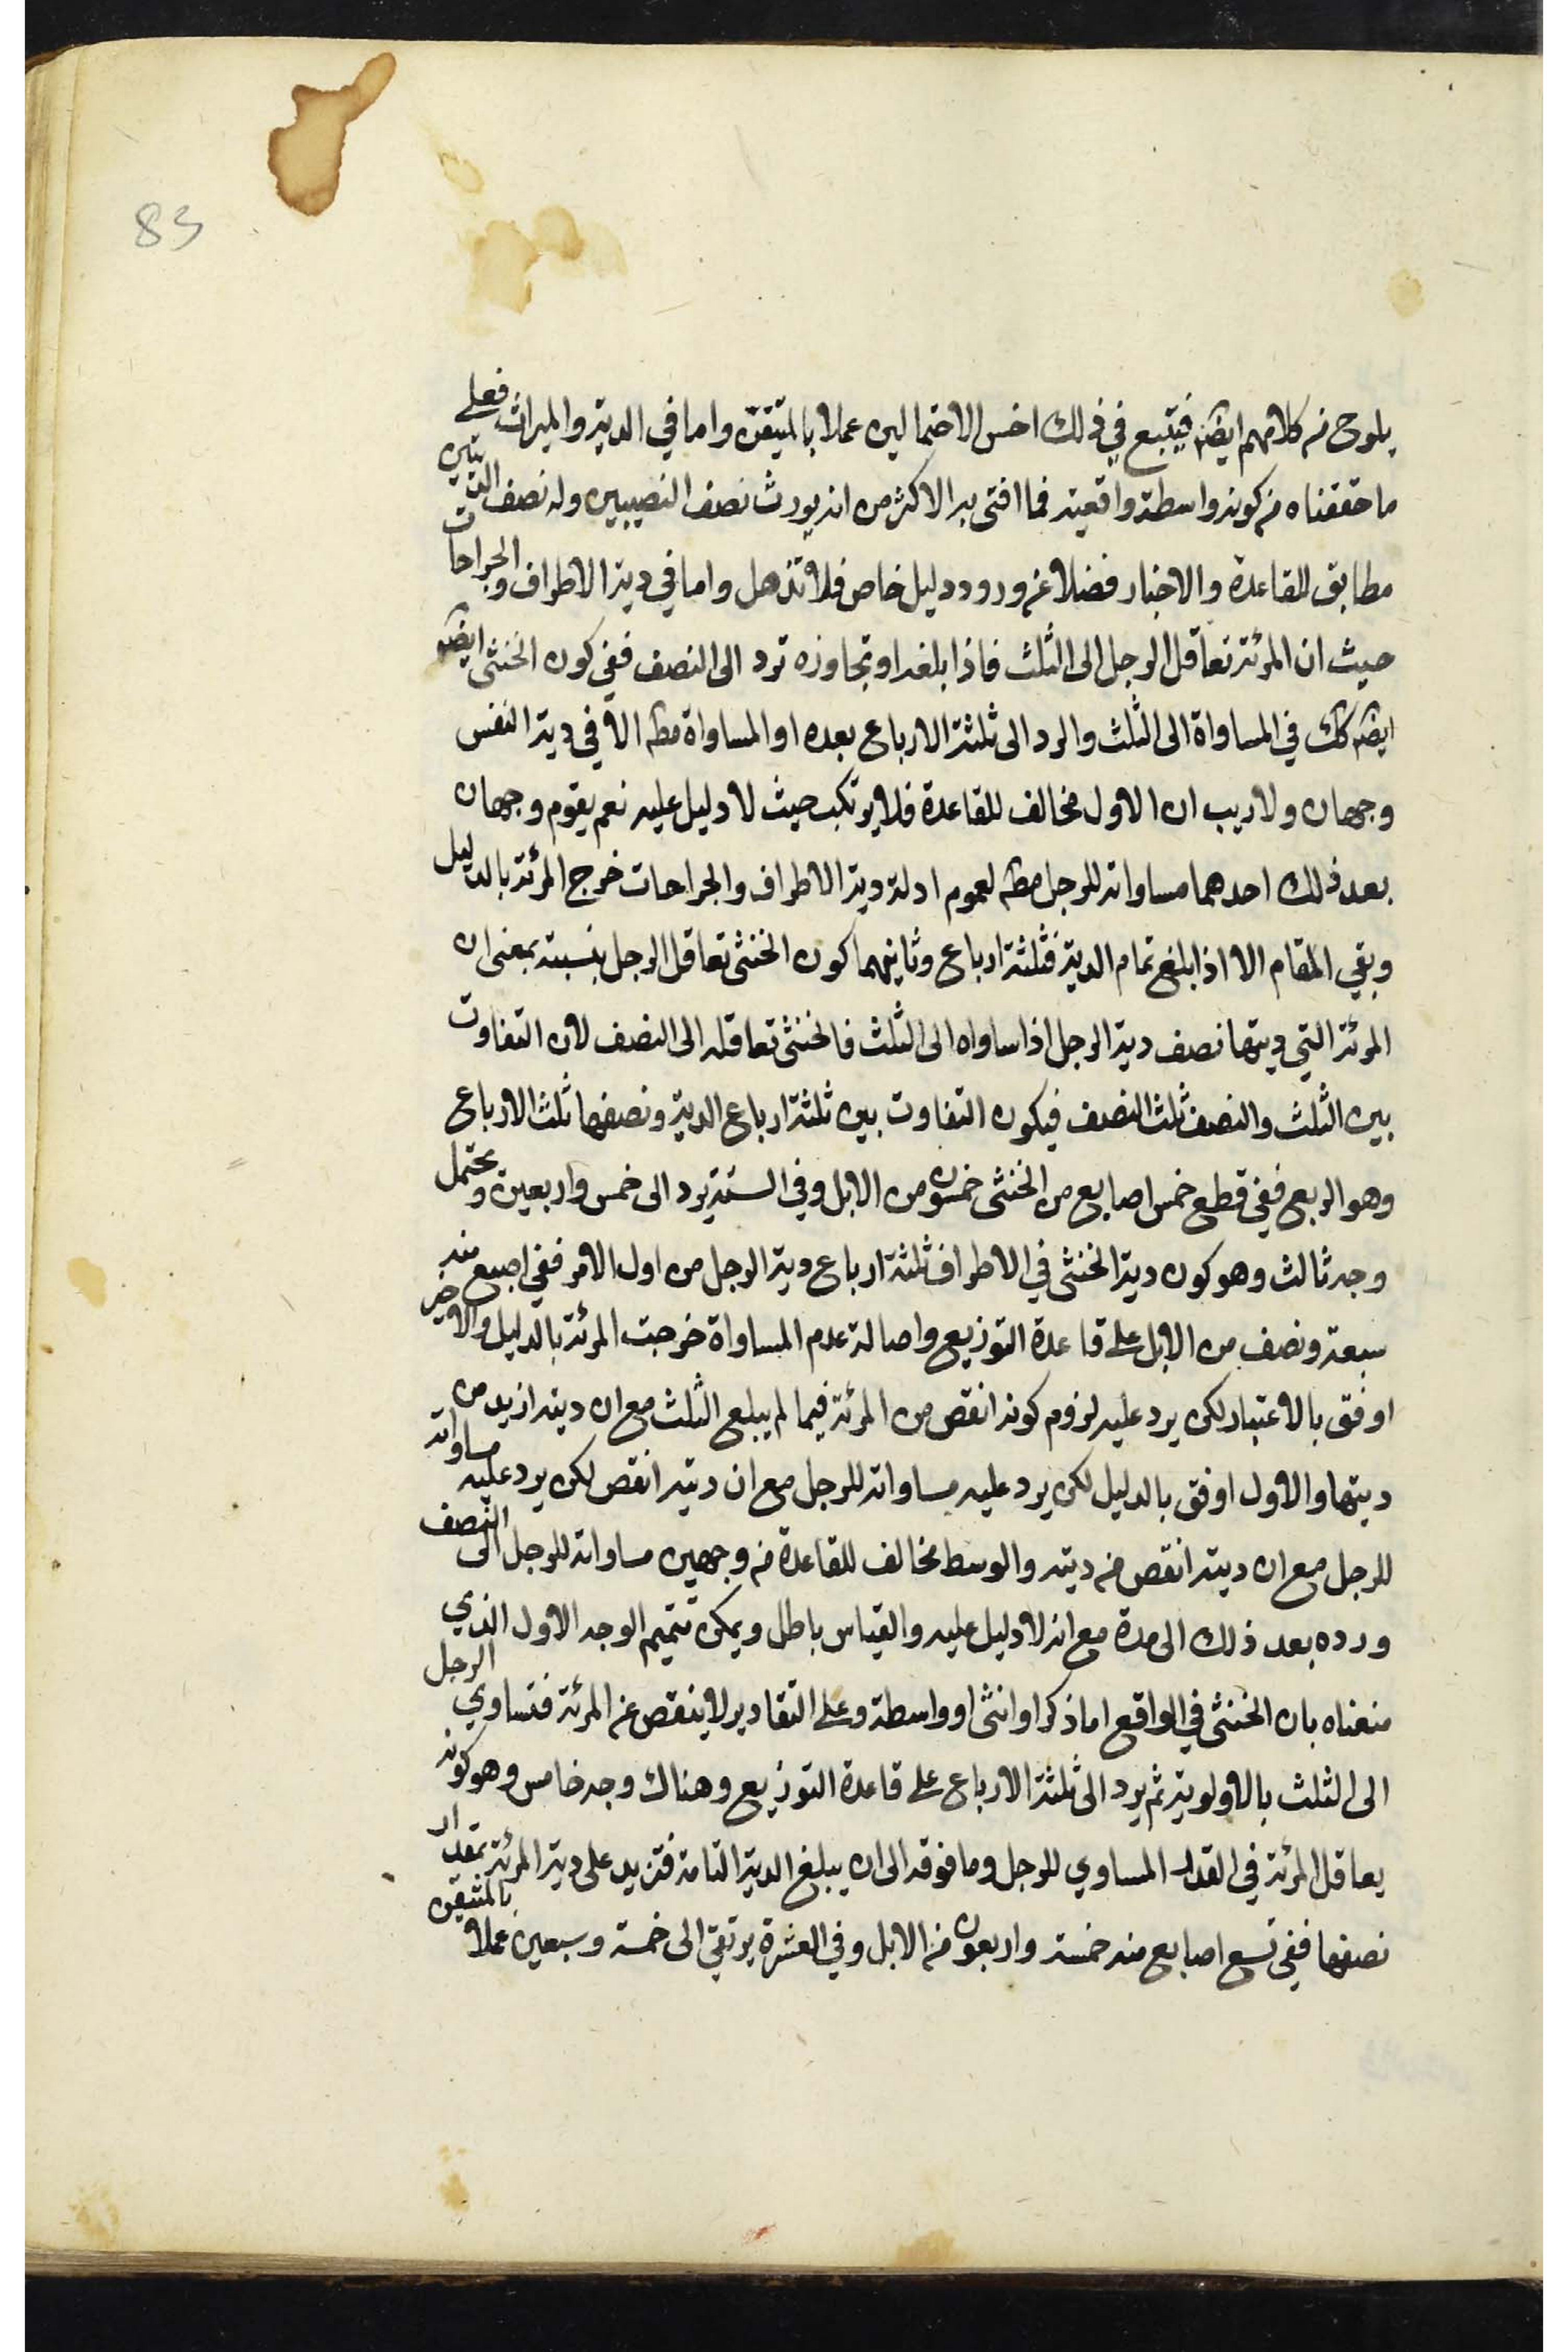 83
يلوح من كلامهم ايضا فيتبع في ذلك اخس الاحتمالين عملا بالمتيقن واما في الدية والميراث فعلى
ما حققناه من كونه واسطة واقعية فما افتى به الاكثر من انه يورث نصف النصيبين وله نصف الديتين
مطابق للقاعدة والاخبار فضلا عن ورود دليل خاص فلا تذهل واما في دية الاطراف والجراحات
حيث ان المرئة تعاقل الرجل الى الثلث فاذا بلغه او تجاوزه ترد الى النصف ففي كون الخنثى ايضا
ايضا كك في المساواة الى الثلث والرد الى ثلثة الارباع بعده او المساواة مطه الا في دية النفس
وجهان ولا ريب ان الاول مخالف للقاعدة فلا يرتكب حيث لا دليل عليه نعم يقوم وجهان
بعد ذلك احدهما مساواته للرجل مطه لعموم ادلة دية الاطراف والجراحات خرج المرئة بالدليل
وبقي المقام الا اذا بلغ تمام الدية فثلثة ارباع وثانيهما كون الخنثى تعاقل الرجل بنسبته بمعنى ان
المرئة التي ديتها نصف دية الرجل اذا ساواه الى الثلث فالخنثى تعاقله الى النصف لان التفاوت
بين الثلث والنصف ثلث النصف فيكون التفاوت بين ثلثة ارباع الدية ونصفها ثلث الارباع
وهو الربع ففي قطع خمس اصابع من الخنثى خمسون من الابل وفي الستة يرد الى خمس واربعين ويحتمل
وجه ثالث وهو كون دية الخنثى في الاطراف ثلثة ارباع دية الرجل من اول الامر ففي اصبع منه
سبعة ونصف من الابل على قاعدة التوزيع واصالة عدم المساواة خرجت المرئة بالدليل والاخير
اوفق بالاعتبار لكن يرد عليه لزوم كونه انقص من المرئة فيما لم يبلغ الثلث مع ان ديته ازيد من
ديتها والاول اوفق بالدليل لكن يرد عليه مساواته للرجل مع ان ديته انقص لكن يرد عليه مساواته
للرجل مع ان ديته انقص من ديته والوسط مخالف للقاعدة من وجهين مساواته للرجل الى النصف
ورده بعد ذلك الى مدة مع انه لا دليل عليه والقياس باطل ويمكن تتميم الوجه الاول الذي
منعناه بان الخنثى في الواقع اما ذكر او انثى او واسطة وعلى التقادير لا ينقص عن المرئة فتساوي الرجل
الى الثلث بالاولوية ثم يرد الى ثلثة الارباع على قاعدة التوزيع وهناك وجه خامس وهو كونه
يعاقل المرئة في القدر المساوي للرجل وما فوقه الى ان يبلغ الدية التامة فتزيد على دية المرئة بمقدار
نصفها ففي تسع اصابع منه خمسة واربعون من الابل وفي العشرة يرتقي الى خمسة وسبعين عملا بالمتيقن